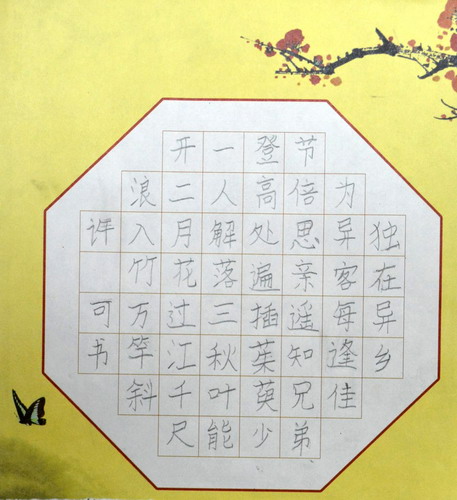 独在异乡
为异客每逢佳
节倍思亲遥知兄弟
登高处遍插茱萸少
一人解落三秋叶能
开二月花过江千尺
浪入竹万竿斜
许可书